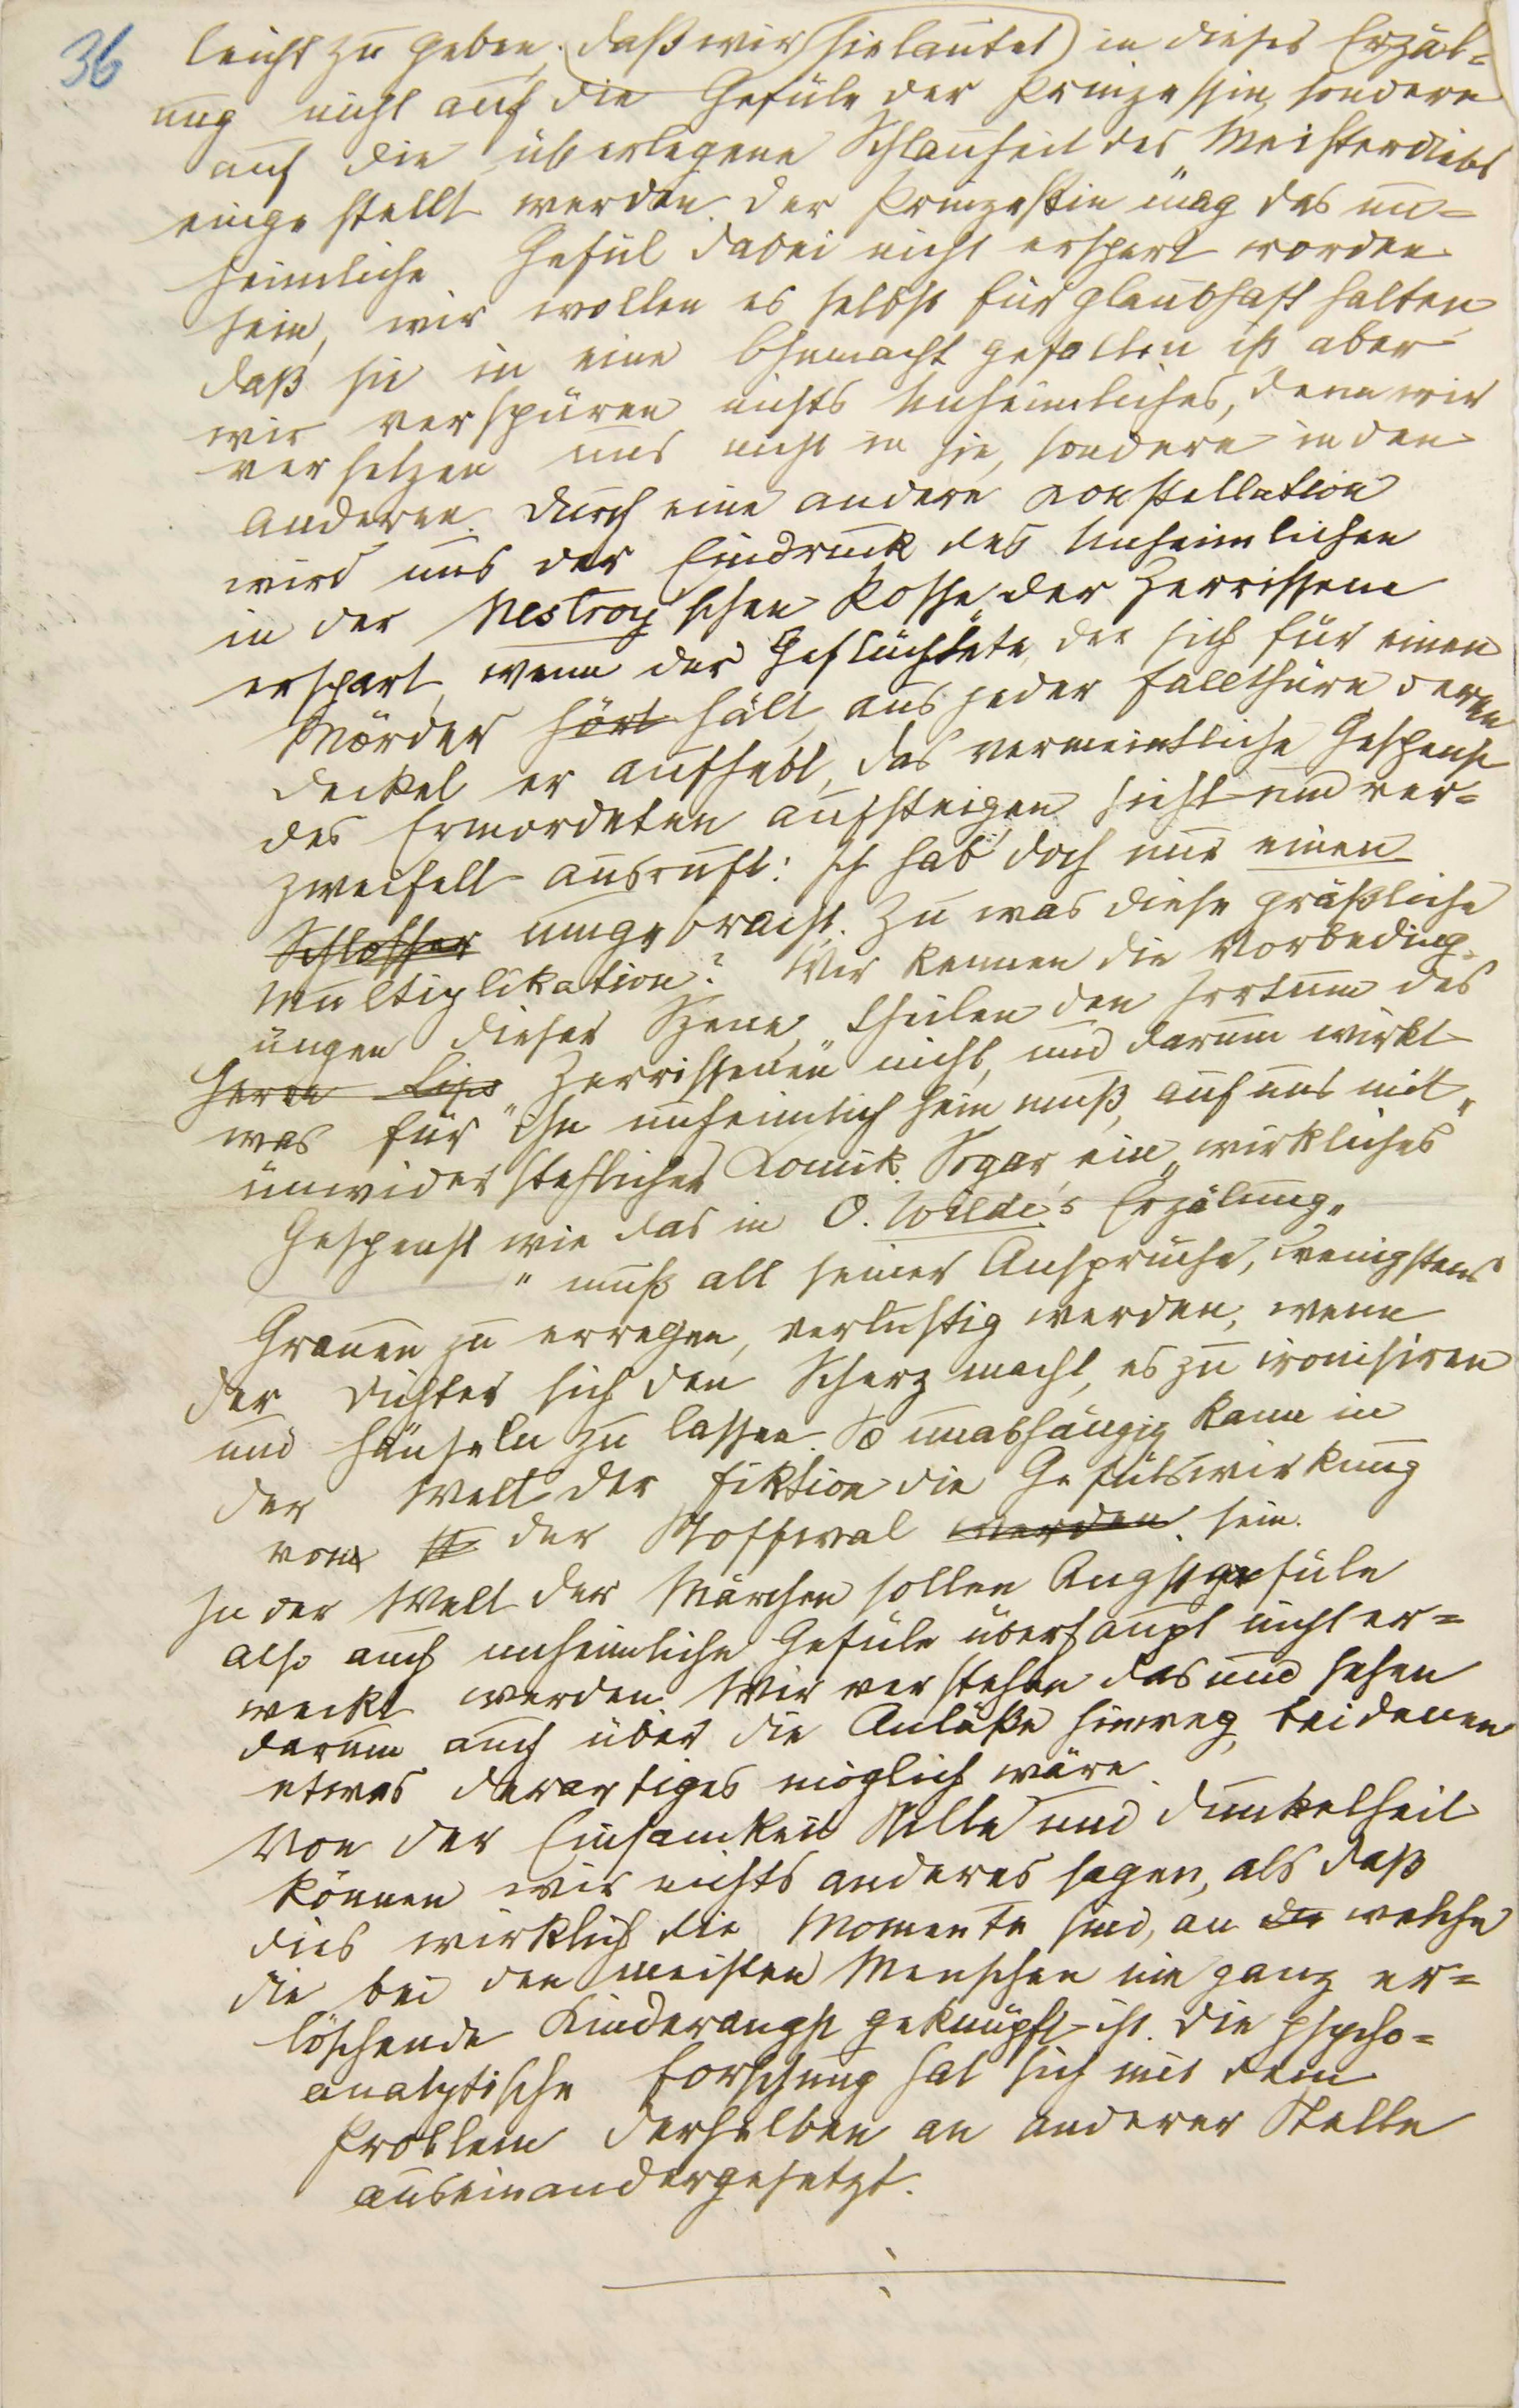 36
leicht zu geben; daß wir (sie lautet) in dieser Erzäl-
ung nicht auf die Gefüle der Prinzessin, sondern
auf die überlegene Schlauheit des „Meisterdiebs
eingestellt werden. Der Prinzessin mag das un-
heimliche Gefül dabei nicht erspart worden
sein, wir wollen es selbst für glaubhaft halten
daß sie in eine Ohnmacht gefallen ist, aber
wir verspüren nichts Unheimliches, denn wir
versetzen uns nicht in sie, sondern in den
anderen. Durch eine andere Konstellation
wird uns der Eindruck des Unheimlichen
in der Nestroy'schen Posse „der Zerrissene
erspart, wenn der Geflüchtete, der sich für einen
Mörder hört hält, aus jeder Fallthüre deren
Deckel er aufhebt, das vermeintliche Gespenst
des Ermordeten aufsteigen sieht und ver-
zweifelt ausruft: Ich hab' doch nur einen
Schlosser umgebracht. Zu was diese gräßliche
Multiplikation? Wir kennen die Vorbeding-
ungen dieser Szene, theilen den Irrtum des
Herrn Lips „Zerrissenen" nicht, und darum wirkt
was für ihn unheimlich sein muß, auf uns mit
unwiderstehlicher Komik. Sogar ein „wirkliches"
Gespenst wie das in O. Wilde's Erzälung „
" muß all seiner Ansprüche, wenigstens
Grauen zu erregen, verlustig werden, wenn
der Dichter sich den Scherz macht, es zu ironisiren
und hänseln zu lassen. So unabhängig kann in
der Welt der Fiktion die Gefülswirkung
von der Stoffwal werden sein.
In der Welt der Märchen sollen Angstgefüle
also auch unheimliche Gefüle überhaupt nicht er-
weckt werden. Wir verstehen das und sehen
darum auch über die Anläße hinweg, bei denen
etwas derartiges möglich wäre.
Von der Einsamkeit Stille und Dunkelheit
können wir nichts anderes sagen, als daß
dies wirklich die Momente sind, an die welche
die bei den meisten Menschen nie ganz er-
löschende Kinderangst geknüpft ist. Die psycho-
analytische Forschung hat sich mit dem
Problem derselben an anderer Stelle
auseinandergesetzt.